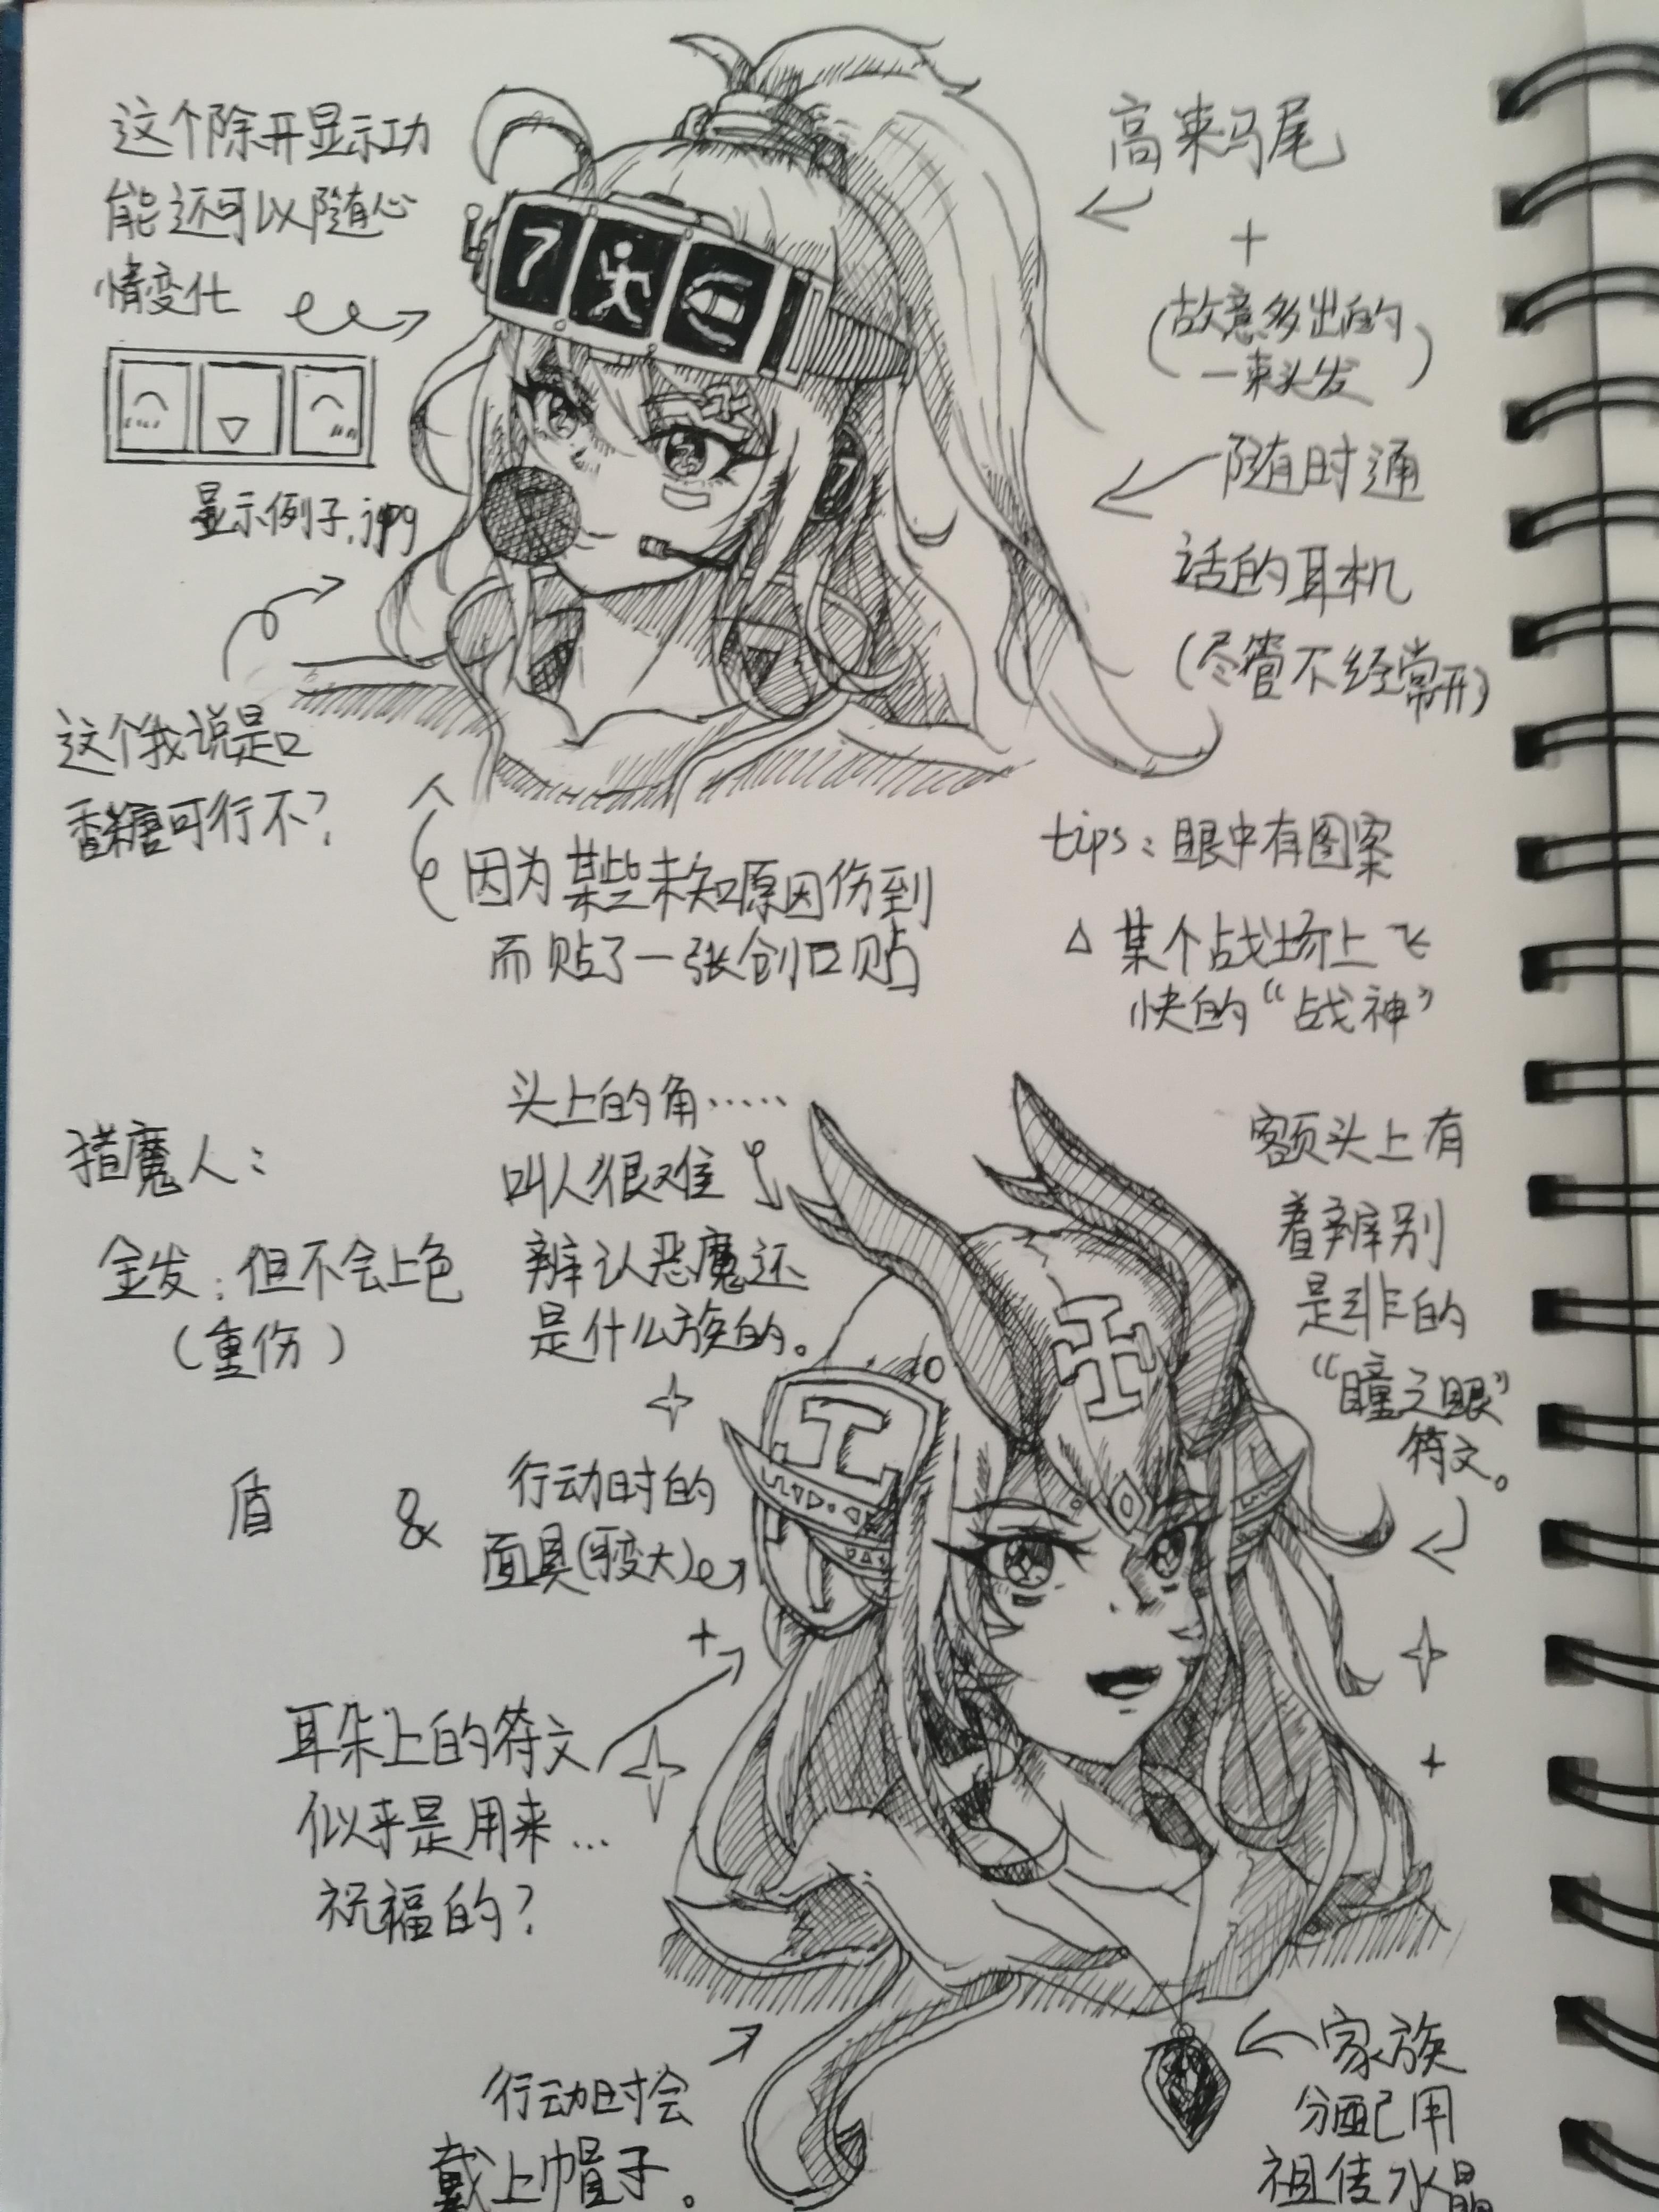 这个除开显示功
能还可以随心
情变化
显示例子.jpg
高束马尾
+
(故意多出的
一束头发)
随时通
话的耳机
(尽管不经常开)
7
7
这个我说是口
香糖可行不?
因为某些未知原因伤到
而贴了一张创口贴
tips:眼中有图案
△某个战场上飞
快的“战神”
猎魔人:
金发:但不会上色
(重伤)
头上的角……
叫人很难
辨认恶魔还
是什么族的。
额头上有
着辨别
是非的
“瞳之眼”
符文。
盾 &
行动时的
面具(可变大)
耳朵上的符文
似乎是用来…
祝福的?
行动时会
戴上帽子。
家族
分配用
祖传水晶